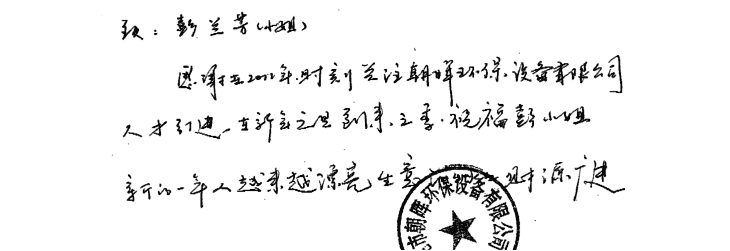 致：彭兰芳（小姐）
感谢在2022年.时刻关注朝晖环保.设备有限公司
人才引进.在新年之际到来.之季.祝福彭小姐
新的一年人越来越漂亮生意 财源广进
市朝晖环保设备有限公司